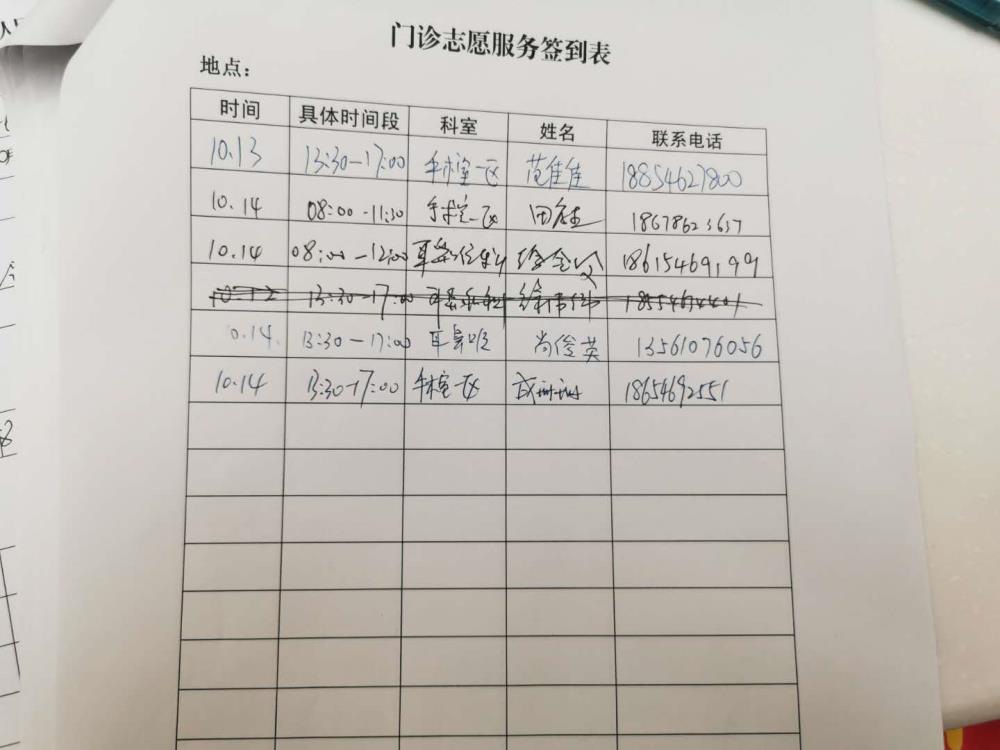 门诊志愿服务签到表
地点：
时间 具体时间段 科室 姓名 联系电话
10.13 13:30-17:00 手术室一区 范佳佳 18854627800
10.14 08:00-11:30 手术室一区 田 18678623637
10.14 08:00-12:00 耳鼻 徐 18615469199
13:30-17:00
0.14. 13:30-17:00 耳鼻喉 尚俊英 13561076056
10.14 13:30-17:00 手术室一区 成珊珊 18654692551